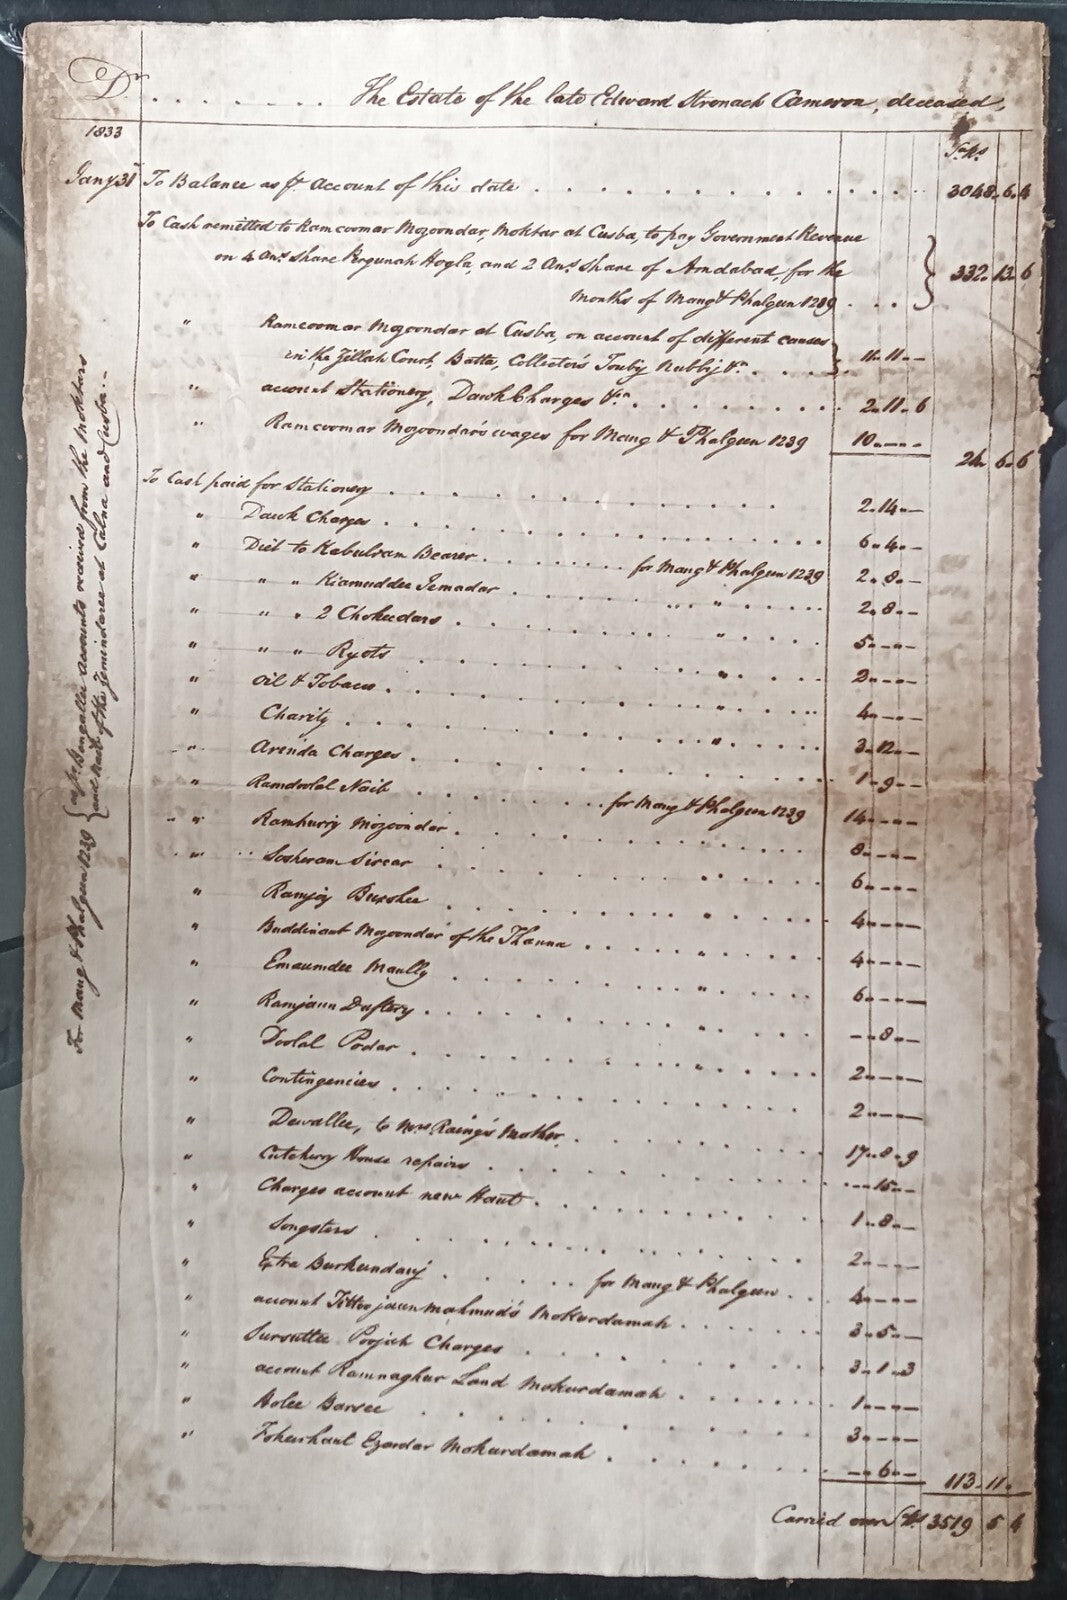 Dr. . . . . . . . The Estate of the late Edward Stronach Cameron, deceased,
1833
Sa Rs
Jany 31 To Balance as pr account of this date . . . 3048.6.4
To Cash remitted to Ramcoomar Mozoondar, Moktar at Cusba, to pay Government Revenue
on 4 Ans share Pergunah Hogla, and 2 Ans share of Amdabad, for the } 332.13.6
Months of Maug & Phalgun 1239 . . .
" Ramcoomar Mozoondar at Cusba, on account of different causes
in the Zillah Court, Batta, Collector's Touby Nubby &ca . . . 11.11.--
" account Stationery, Dawk Charges &ca . . . 2.11.6
" Ramcoomar Mozoondar's wages for Maug & Phalgun 1239 10.----
24.6.6
To Cash paid for Stationery . . . 2.14.--
" Dawk Charges . . . 6.4.--
" Diet to Kabulram Bearer . . . for Maug & Phalgun 1239 2.8.--
" " " Kiamuddee Jemadar . . . " . . . 2.8.--
" " " 2 Chokeedars . . . " . . . 5.----
" " " Ryots . . . " . . . 2.----
" Oil & Tobacco . . . " . . . 4.----
" Charity . . . " . . . 3.12.--
" Arenda Charges . . . 1.9.--
" Ramdolal Naib . . . for Maug & Phalgun 1239 14.----
" Ramhurry Mozoondar . . . 8.----
" Sosheram Sircar . . . " . . . 6.----
" Ramjoy Buxshee . . . " . . . 4.----
" Buddinaut Mozoondar of the Thanna . . . " . . . 4.----
" Emaumdee Maully . . . " . . . 6.----
" Ramjaun Duftery . . . " . . . --.8.--
" Doolal Podar . . . " . . . 2.----
" Contingencies . . . 2.----
" Dewallee, to Mrs Raeng's Mother . . . 17.8.9
" Cutcherry House repairs . . . --.15.--
" Charges account new Haut . . . 1.8.--
" Songsters . . . 2.----
" Extra Burkundauj . . . for Maug & Phalgun . . . 4.----
" account Tittoojaun Mahmud's Mokurdamah . . . 3.5.--
" Sursuttee Poojah Charges . . . 3.1.3
" account Ramnaghur Land Mokurdamah . . . 1.----
" Holee Barsee . . . 3.----
" Mokurdamah . . . --.6.--
113.11.
Carried over Sa Rs 3519 5 4
For Maug & Phalgun 1239 { as pr Bengallee accounts received from the Moktars
and Naib of the Zemindaree at Calna and Cusba.-